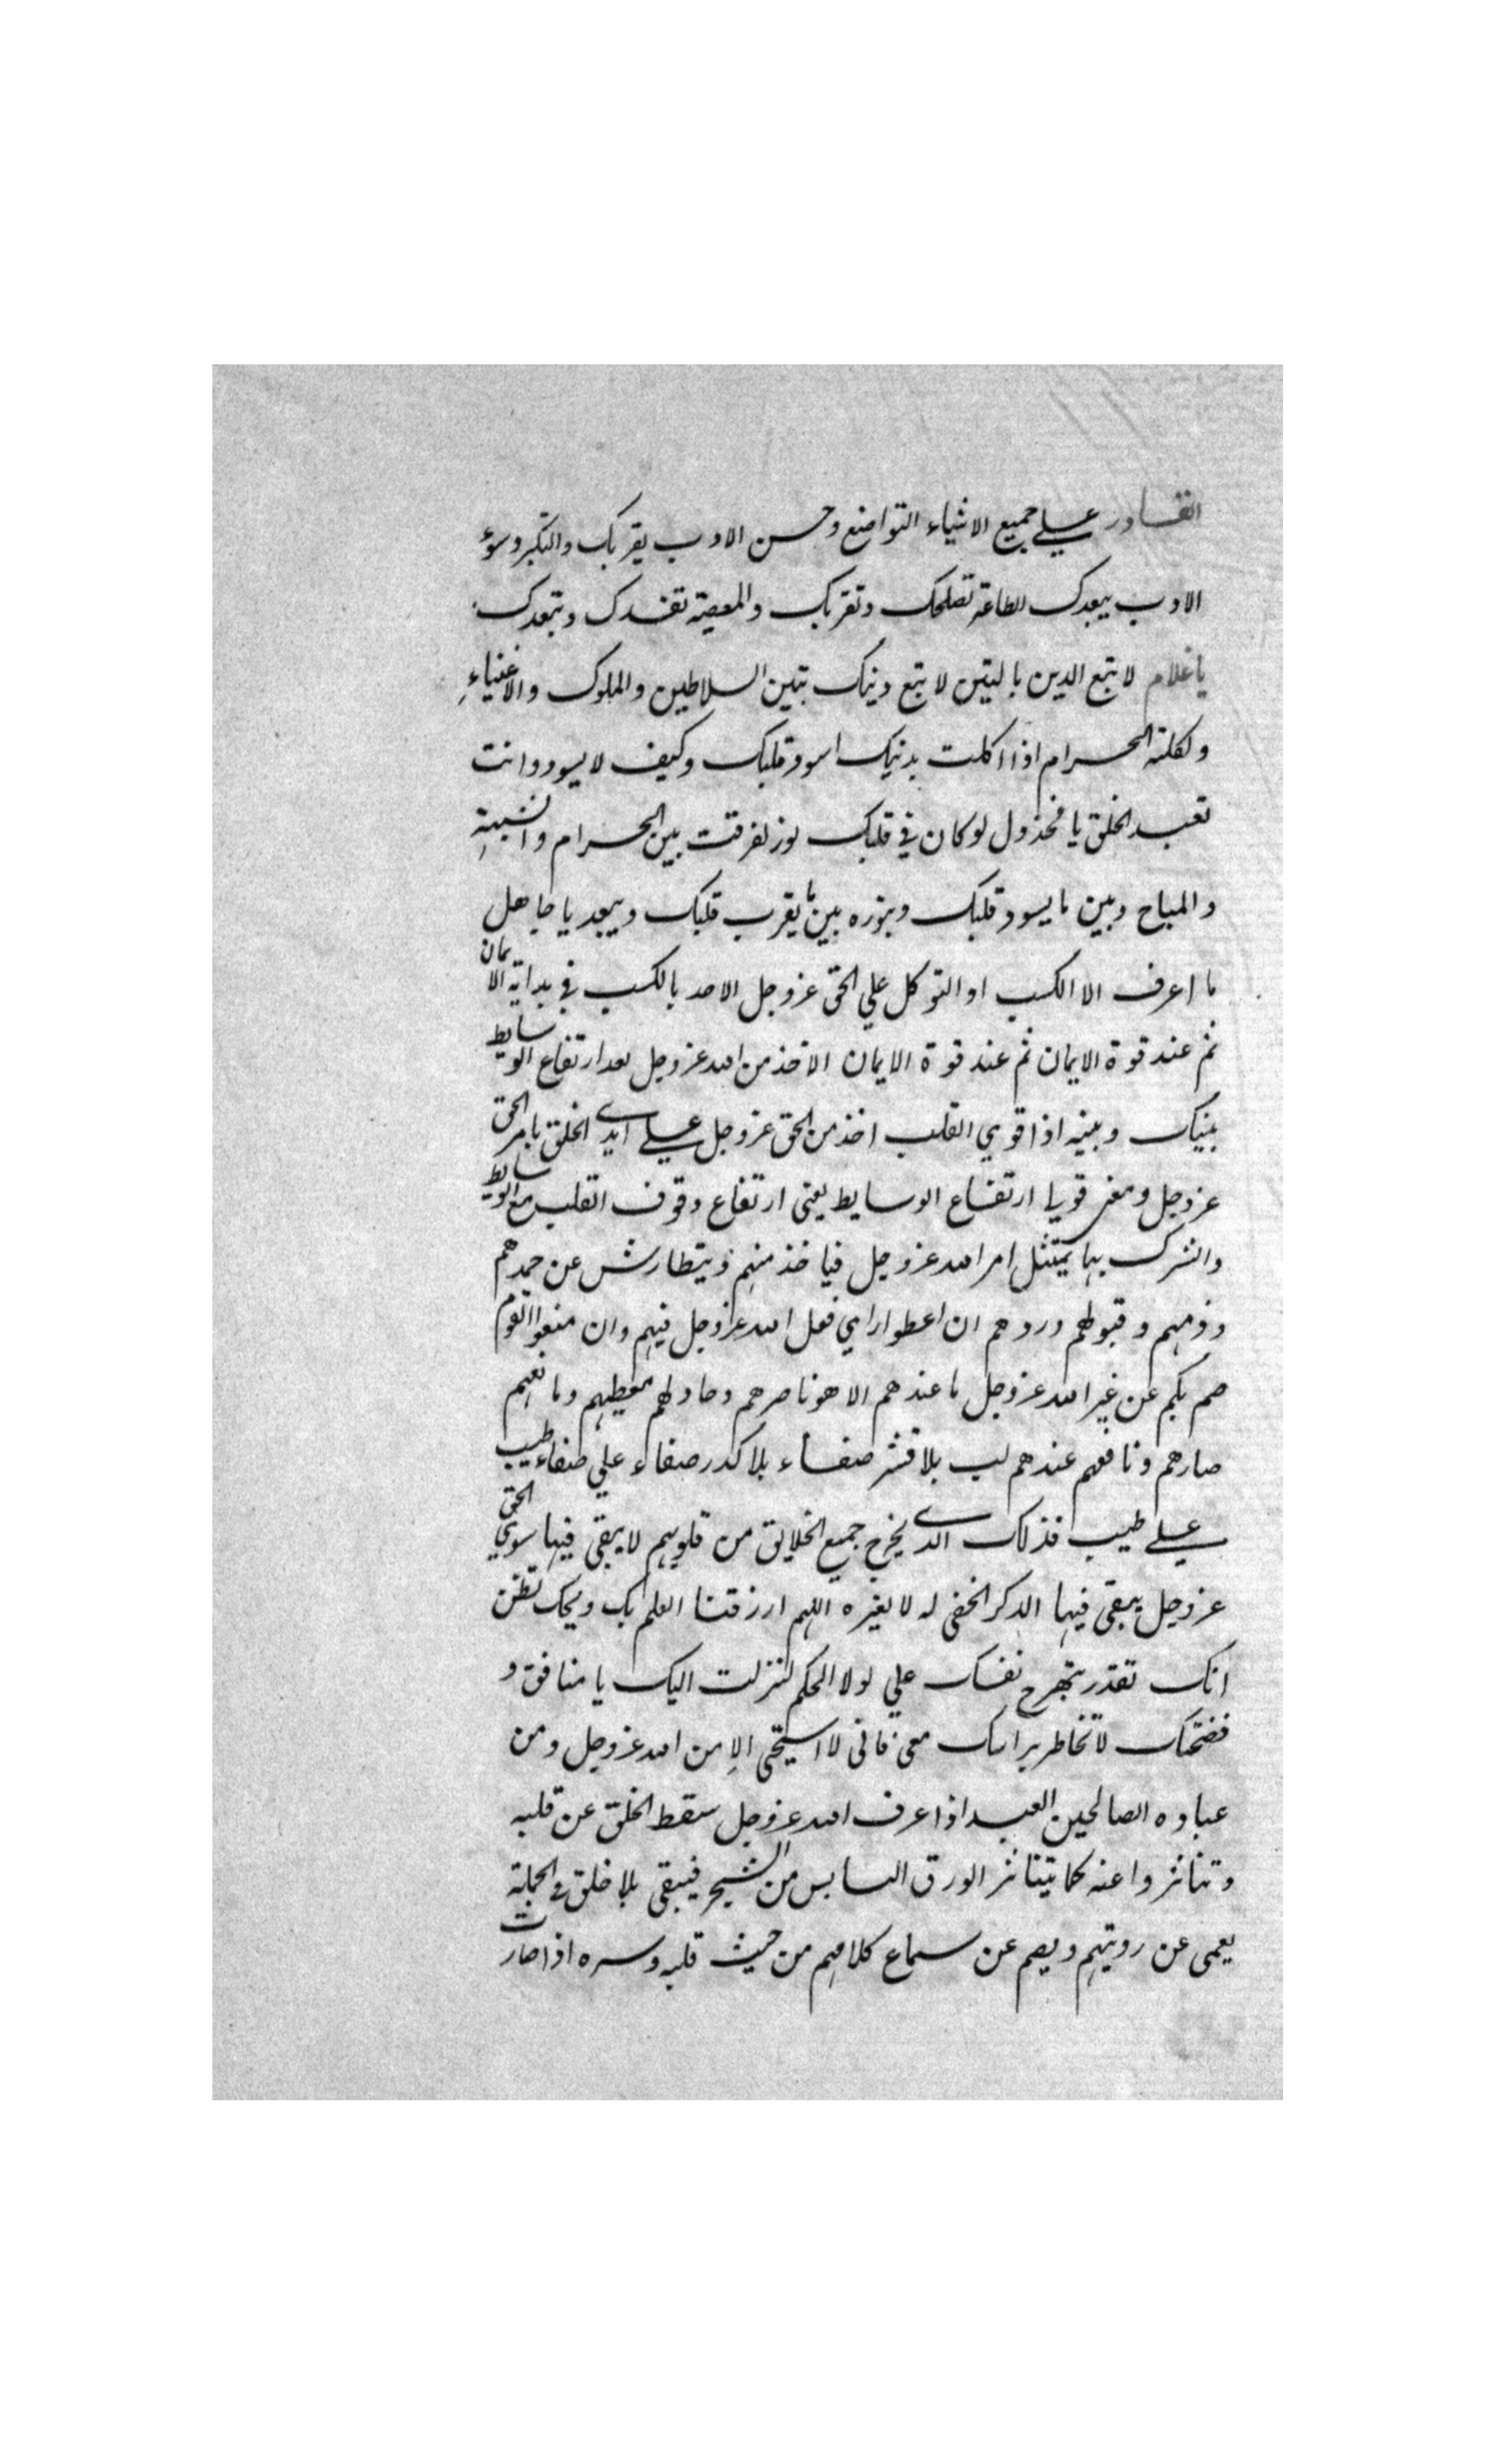 القادر علي جميع الاشياء التواضع وحسن الادب يقربك والتكبر وسوء
الادب يبعدك الطاعة تصلحك وتقربك والمعصية تفسدك وتبعدك
يا غلام لا تبع الدين بالتين لا تبع دينك بتين السلاطين والملوك والاغنياء
واكلة الحرام اذا اكلت بدينك اسود قلبك وكيف لا يسود وانت
تعبد الخلق يا مخذول لو كان في قلبك نور لفرقت بين الحرام والشبهة
والمباح وبين ما يسود قلبك وينوره بين ما يقرب قلبك ويبعد يا جاهل
ما اعرف الا الكسب او التوكل علي الحق عز وجل الاحد بالكسب في بداية الايمان
ثم عند قوة الايمان ثم عند قوة الايمان الاخذ من الله عز وجل بعد ارتفاع الوسايط
بينك وبينه اذا قوي القلب اخذ من الحق عز وجل علي ايدي الخلق بامر الحق
عز وجل ومعني قويا ارتفاع الوسايط يعني ارتفاع وقوف القلب مع الوسايط
والشرك بها يمتثل امر الله عز وجل فياخذ منهم ويتطارش عن حمدهم
وذمهم وقبولهم وردهم ان اعطوا راي فعل الله عز وجل فيهم وان منعوا القوم
صم بكم عن غير الله عز وجل ما عندهم الا هو ناصرهم وحادلهم معطيهم ومانعهم
صارهم ونافعهم عندهم لب بلا قشر صفاء بلا كدر صفاء علي صفاء طيب
علي طيب فذلك الدي يخرج جميع الخلايق من قلوبهم لا يبقي فيها سوي الحق
عز وجل يبقي فيها الدكر الخفي له لا لغيره اللهم ارزقنا العلم بك ويحك تظن
انك تقدر تبهرج نفسك علي لولا الحكم لنزلت اليك يا منافق و
فضحتك لا تخاطر براسك معي فاني لا استحي الا من الله عز وجل ومن
عباده الصالحين العبد اذا عرف الله عز وجل سقط الخلق عن قلبه
وتناثروا عنه كما يتناثر الورق اليابس من الشجر فيبقي بلا خلق في الجملة
يعمي عن رويتهم ويصم عن سماع كلامهم من حيث قلبه وسره اذا صارت